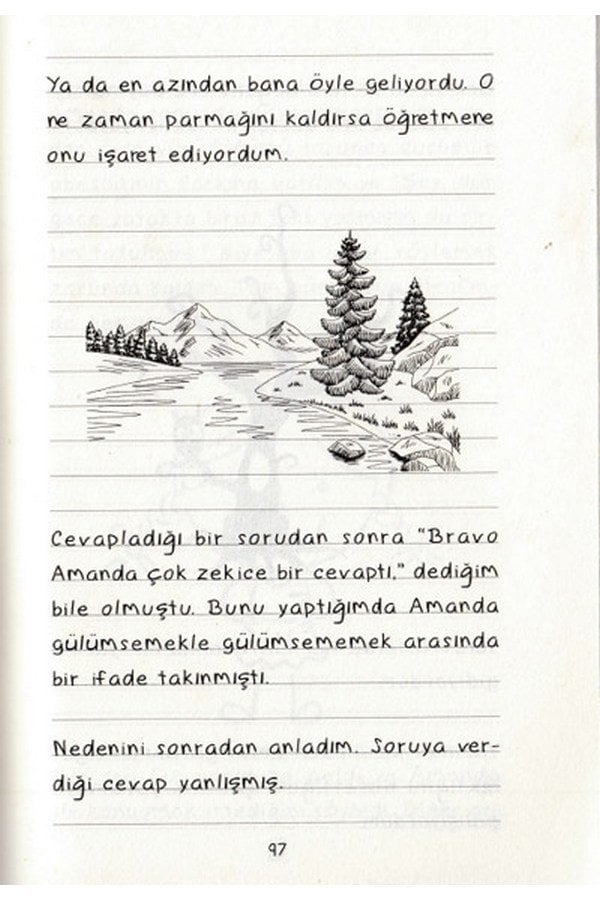 Ya da en azından bana öyle geliyordu. O
ne zaman parmağını kaldırsa öğretmene
onu işaret ediyordum.
Cevapladığı bir sorudan sonra "Bravo
Amanda çok zekice bir cevaptı." dediğim
bile olmuştu. Bunu yaptığımda Amanda
gülümsemekle gülümsememek arasında
bir ifade takınmıştı.
Nedenini sonradan anladım. Soruya ver-
diği cevap yanlışmış.
97